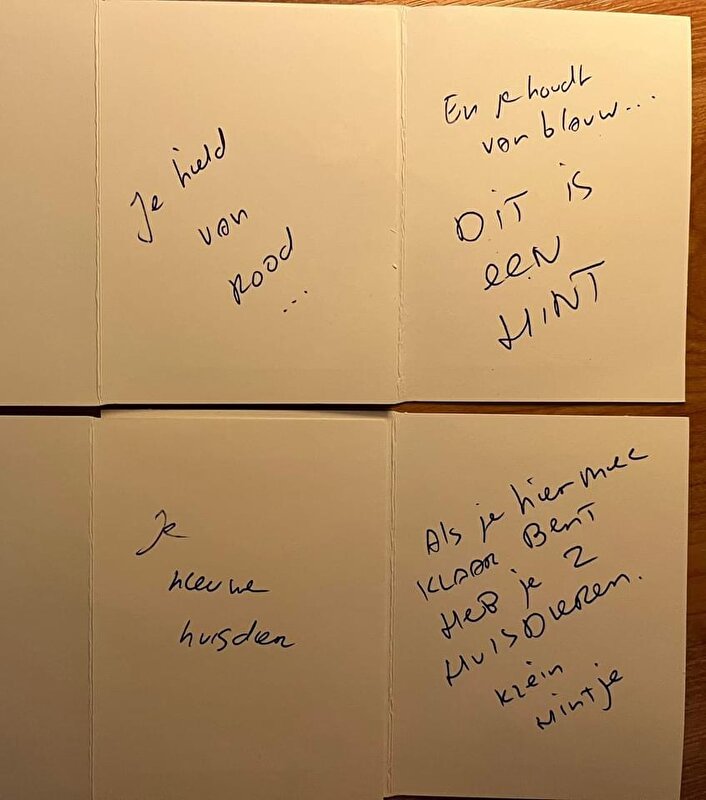 Je hield
van
ROOD
...
En je houdt
van blauw...
DIT is
eeN
HINT
Je
nieuwe
huisdier
Als je hiermee
KLAAR BenT
HeB je 2
HuisDieren.
Klein
Hintje